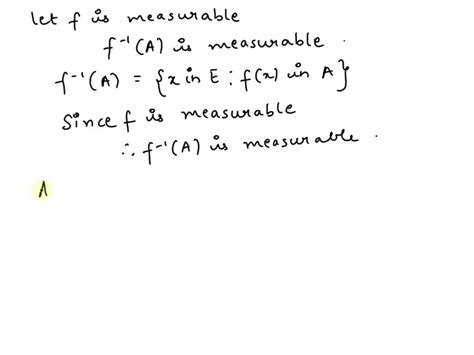 let f is measurable
f⁻¹(A) is measurable .
f⁻¹(A) = {x in E : f(x) in A}
Since f is measurable
∴ f⁻¹(A) is measurable .
A